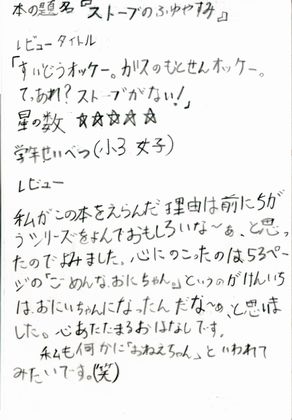 本の題名『ストーブのふゆやすみ』
レビュータイトル
「すいどうオッケー。ガスのもとせんオッケー。
て、あれ？ストーブがない！」
星の数 ☆☆☆☆☆
学年せいべつ(小3 女子)
レビュー
私がこの本をえらんだ理由は前に5が
うシリーズをよんでおもしろいな〜ぁ、と思っ
たのでよみました。心にのこったのは53ペー
ジの「ごめんな、おにちゃん。」というのがけんいち
は、おにいちゃんになったんだな〜ぁ、と思いま
した。心あたたまるおはなしです。
私も何かに「おねえちゃん」といわれて
みたいです。(笑)